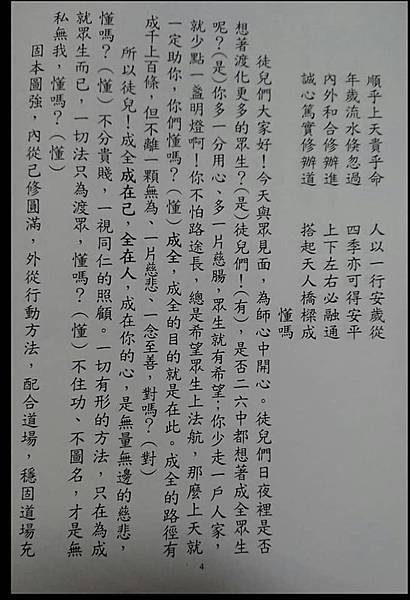 順乎上天貴乎命　人以一行安歲從
年歲流水倏忽過　四季亦可得安平
內外和合修辦進　上下左右必融通
誠心篤實修辦道　搭起天人橋樑成
懂嗎
徒兒們大家好！今天與眾見面，為師心中開心。徒兒們日夜裡是否
想著渡化更多的眾生？（是）徒兒們！（有），是否二六中都想著成全眾生
呢？（是）你多一分用心、多一片慈腸，眾生就有希望；你少走一戶人家，
就少點一盞明燈啊！你不怕路途長，總是希望眾生上法航，那麼上天就
一定助你，你們懂嗎？（懂）成全，成全的目的就是在此。成全的路徑有
成千上百條，但不離一顆無為、一片慈悲、一念至善，對嗎？（對）
所以徒兒！成全成在己，全在人，成在你的心，是無量無邊的慈悲，
懂嗎？（懂）不分貴賤，一視同仁的照顧。一切有形的方法，只在為成
就眾生而已，一切法只為渡眾，懂嗎？（懂）不住功、不圖名，才是無
私無我，懂嗎？（懂）
固本圖強，內從己修圓滿，外從行動方法，配合道場，穩固道場充
4